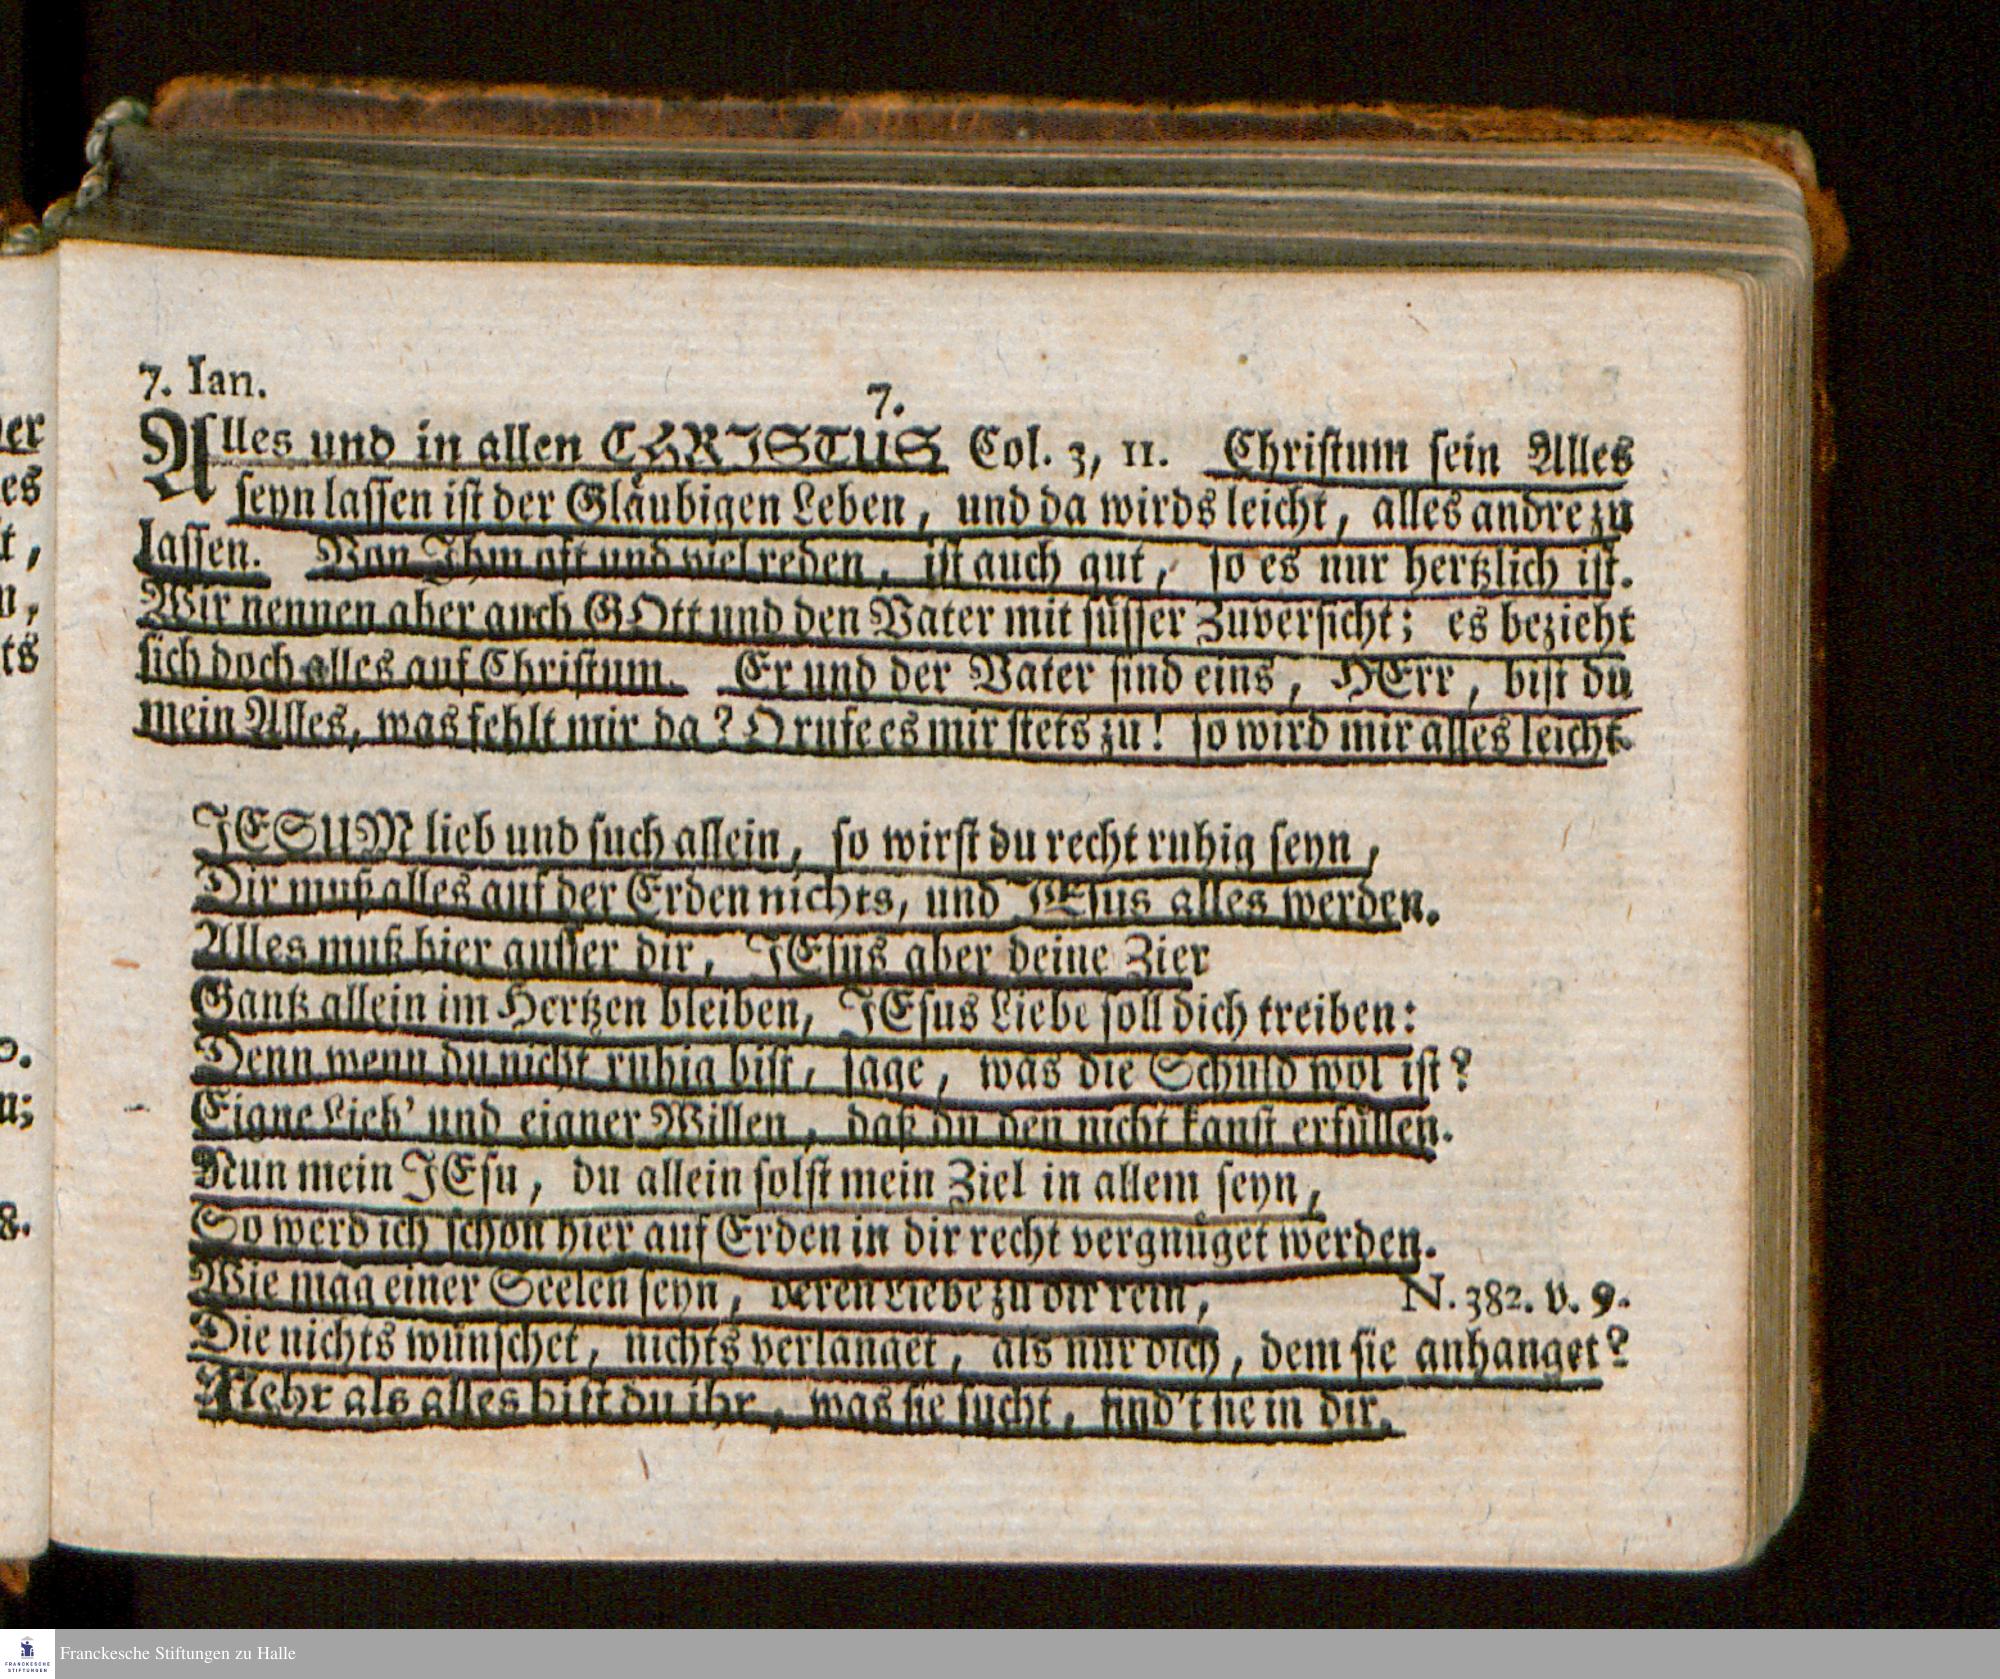 7. Ian.
7.
Alles und in allen CHRISTUS Col. 3, 11. Christum sein Alles
seyn lassen ist der Gläubigen Leben, und da wirds leicht, alles andre zu
lassen. Von Ihm oft und viel reden, ist auch gut, so es nur hertzlich ist.
Wir nennen aber auch GOtt und den Vater mit süsser Zuversicht; es bezieht
sich doch alles auf Christum. Er und der Vater sind eins, HErr, bist du
mein Alles, was fehlt mir da? O rufe es mir stets zu! so wird mir alles leicht.
JESUM lieb und such allein, so wirst du recht ruhig seyn,
Dir muß alles auf der Erden nichts, und JEsus alles werden.
Alles muß hier ausser dir, JEsus aber deine Zier
Gantz allein im Hertzen bleiben, JEsus Liebe soll dich treiben:
Denn wenn du nicht ruhig bist, sage, was die Schuld wol ist?
Eigne Lieb' und eigner Willen, daß du den nicht kanst erfüllen.
Nun mein JEsu, du allein solst mein Ziel in allem seyn,
So werd ich schon hier auf Erden in dir recht vergnüget werden.
Wie mag einer Seelen seyn, deren Liebe zu dir rein, N. 382. v. 9.
Die nichts wünschet, nichts verlanget, als nur dich, dem sie anhanget?
Mehr als alles bist du ihr, was sie sucht, find't sie in dir.
er
es
t,
n,
ts
o.
n;
8.
FRANCKESCHE
STIFTUNGEN
Franckesche Stiftungen zu Halle